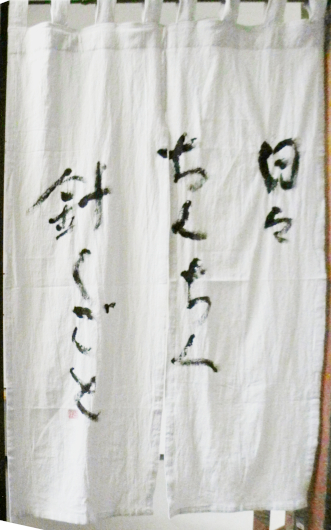 日々
ちくちく
針しごと